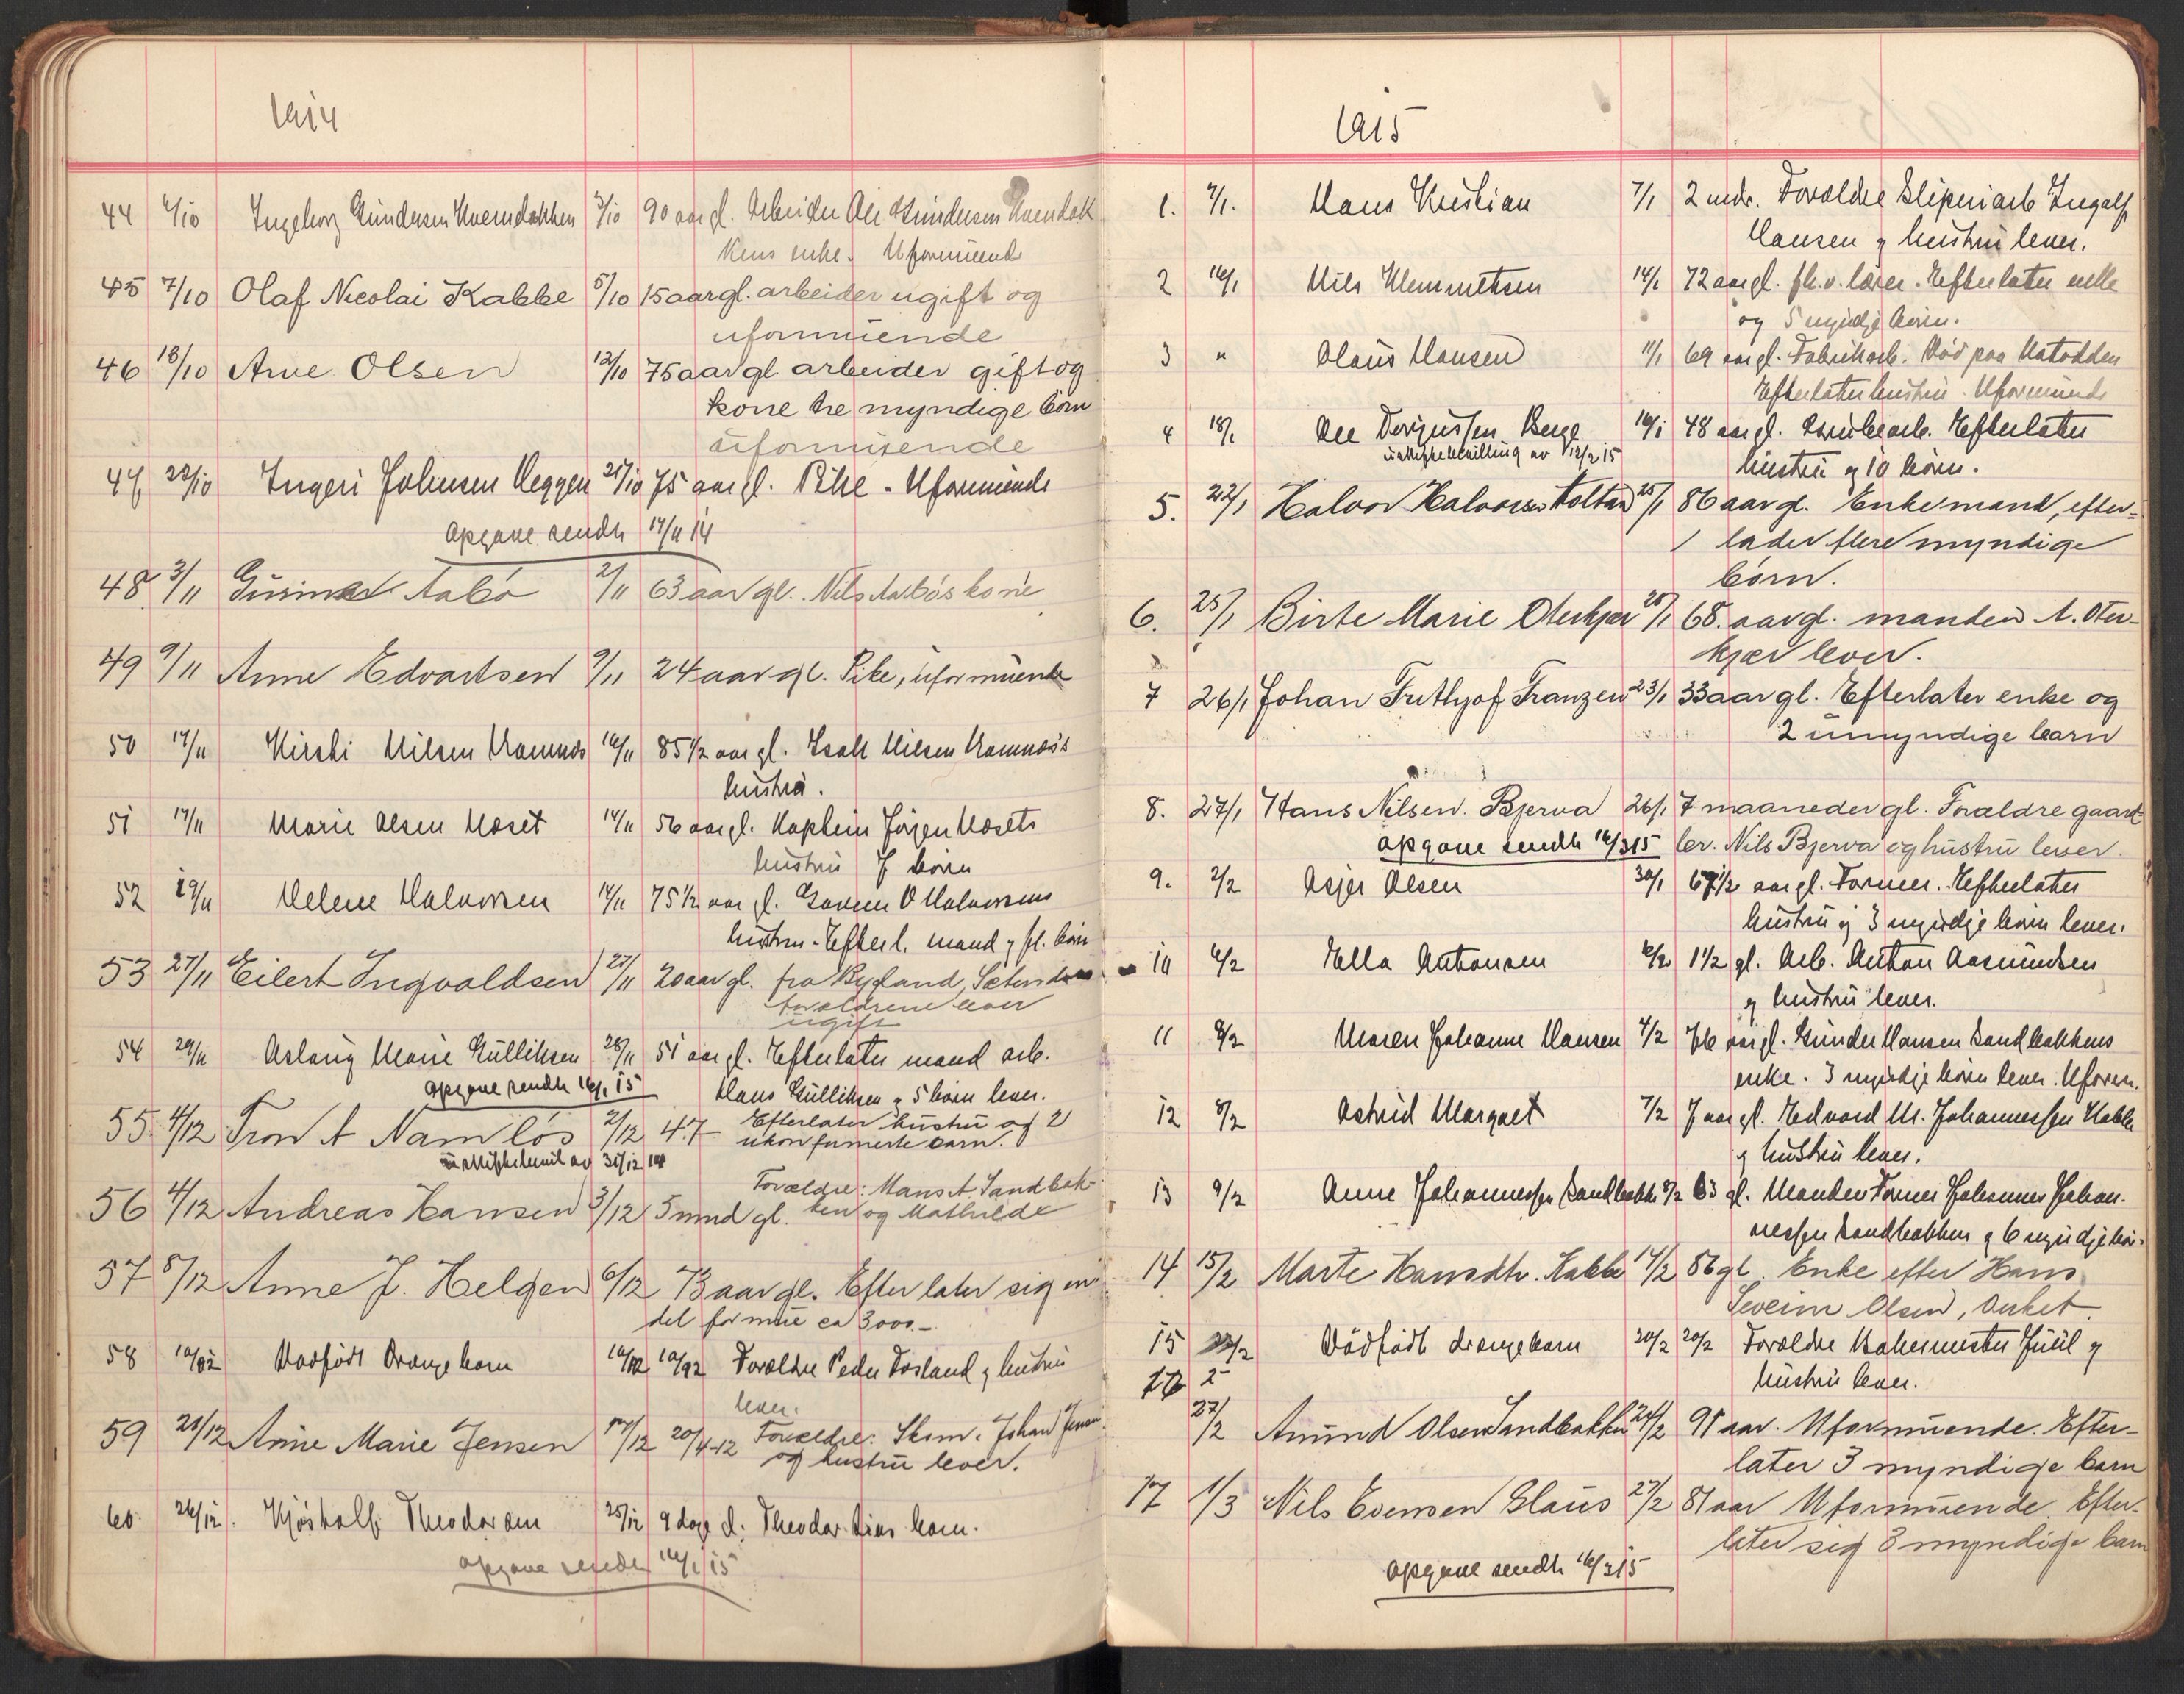 1914
44 6/10 Ingeborg Gundersen Kverndokken 3/10 90 aar gl. Arbeider Ole Gundersen Kverndok
kens enke. Uformuende
45 7/10 Olaf Nicolai Kabbe 5/10 15 aar gl. arbeider ugift og
uformuende
46 18/10 Arve Olsen 12/10 75 aar gl arbeider gift og
kone tre myndige børn
uformuende
47 22/10 Ingeri Johnsen Heggen 21/10 75 aar gl. Pike - Uformuende
Opgave sendt 17/11 14
48 3/11 Aabø 2/11 63 aar gl. Nils Aabøs kone
49 9/11 Anne Edvartsen 9/11 24 aar gl. Pike, uformuende
50 17/11 Kirsti Nilsen Namnæs 16/11 85 1/2 aar gl. Isak Nilsen Namnæs's
hustru.
51 17/11 Marie Olsen Moset 14/11 56 aar gl. Kaptein Jørgen Mosets
hustru 7 børn
52 19/11 Helene Halvorsen 14/11 75 1/2 aar gl. Garver O Halvorsens
hustru - Efterl. mand og fl. børn
53 27/11 Eilert Ingvaldsen 27/11 20 aar gl. fra Bygland, Setersdalen
forældrene lever
ugift
54 29/11 Aslaug Marie Gulliksen 28/11 51 aar gl. Efterlater mand arb.
Opgave sendt 16/1 15 Hans Gulliksen og 5 børn lever.
55 4/12 Tron A Namløs 2/12 47 Efterlater hustru og 2
ukonfirmerte barn.
uskiftebevil av 31/12 14
56 4/12 Andreas Hansen 3/12 5 mnd gl. Forældre: Hans A. Sandbak-
ken og Mathilde
57 8/12 Anne J. Helgen 6/12 73 aar gl. Efterlater sig en
del formue ca 3000.-
58 10/12 Dødfødt Drengebarn 10/12 10/12 Forældre Peder Fosland og hustru
lever.
59 21/12 Anne Marie Jensen 17/12 20/4-12 Forældre: Skom. Johan Jensen
og hustru lever.
60. 26/12. Theodorsen 25/12 9 dage g. Theodor barn.
Opgave sendt 16/1 15
1915
1. 7/1. Hans Kristian 7/1 2 mdr. Forældre Sliperiarb Ingolf
Hansen og hustru lever.
2 16/1 Nils Klemmetsen 14/1 72 aar gl. fh.v. lærer. Efterlater enke
og 5 myndje børn.
3 " Olaus Hansen 11/1 69 aar gl. Fabrikarb. Død paa Notodden
Efterlater hustru. Uformuende
4 18/1 Ole Berge 16/1 48 aar gl. Grubearb. Efterlater
uskiftebevilling av 12/2 15 hustru og 10 børn.
5. 22/1 Halvor Halvorsen Holtan 25/1 86 aar gl. Enkemand, efter-
lader flere myndige
børn.
6. 25/1 Birte Marie Oterkjær 20/1 68 aar gl. manden A. Oter-
kjær lever.
7 26/1 Johan Frithjof Franzen 23/1 33 aar gl. Efterlater enke og
2 umyndige barn
8. 27/1 Hans Nilsen. Bjerva 26/1 7 maaneder gl. Forældre gaard-
Opgave sendt 16/3 15 br. Nils Bjerva og hustru lever.
9. 2/2 Asjer Olsen 30/1 67 1/2 aar gl. Former. Efterlater
hustru og 3 myndje børn lever.
10 6/2 Ella Antonsen 6/2 1 1/2 gl. Arb. Anton Aasmundsen
og hustru lever.
11 8/2 Maren Johanne Hansen 4/2 76 aar gl. Gunder Hansen Sandbakkens
enke. 3 myndje børn lever. Uform.
12 8/2 Astrid Margret 7/2 7 aar gl. Edvard M. Johannessen Kabbe
og hustru lever.
13 9/2 Anne Johannessen Sandbakke 8/2 63 gl. Manden Former Johannes Johan-
nessen Sandbakken og 6 myndje børn
14 15/2 Marte Hansdtr. Kabbe 14/2 86 gl. Enke efter Hans
Severin Olsen, Anket
15 22/2 Dødfødt drengebarn 20/2 20/2 Forældre Banemester Juul og
hustru lever.
16 2
27/2 Amund Olsen Sandbakken 24/2 91 aar. Uformuende. Efter-
later 3 myndige barn
17 1/3 Nils Evensen Glaus 27/2 81 aar Uformuende. Efter-
later sig 3 myndige barn
Opgave sendt 16/3 15